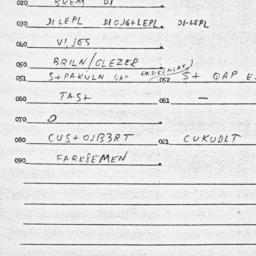 020 BREM DI
030 DILEPL DIOJG+LEPL. DI-LEPL
040 VIJES
050 BRILN/GLEZER
051 S+PAKULN GAP 052 S+ GAP E.
060 TAS+ 061 —
070 O
080 CUS+OJB3RT 081 CUKUDLT
090 FARKIEMEN